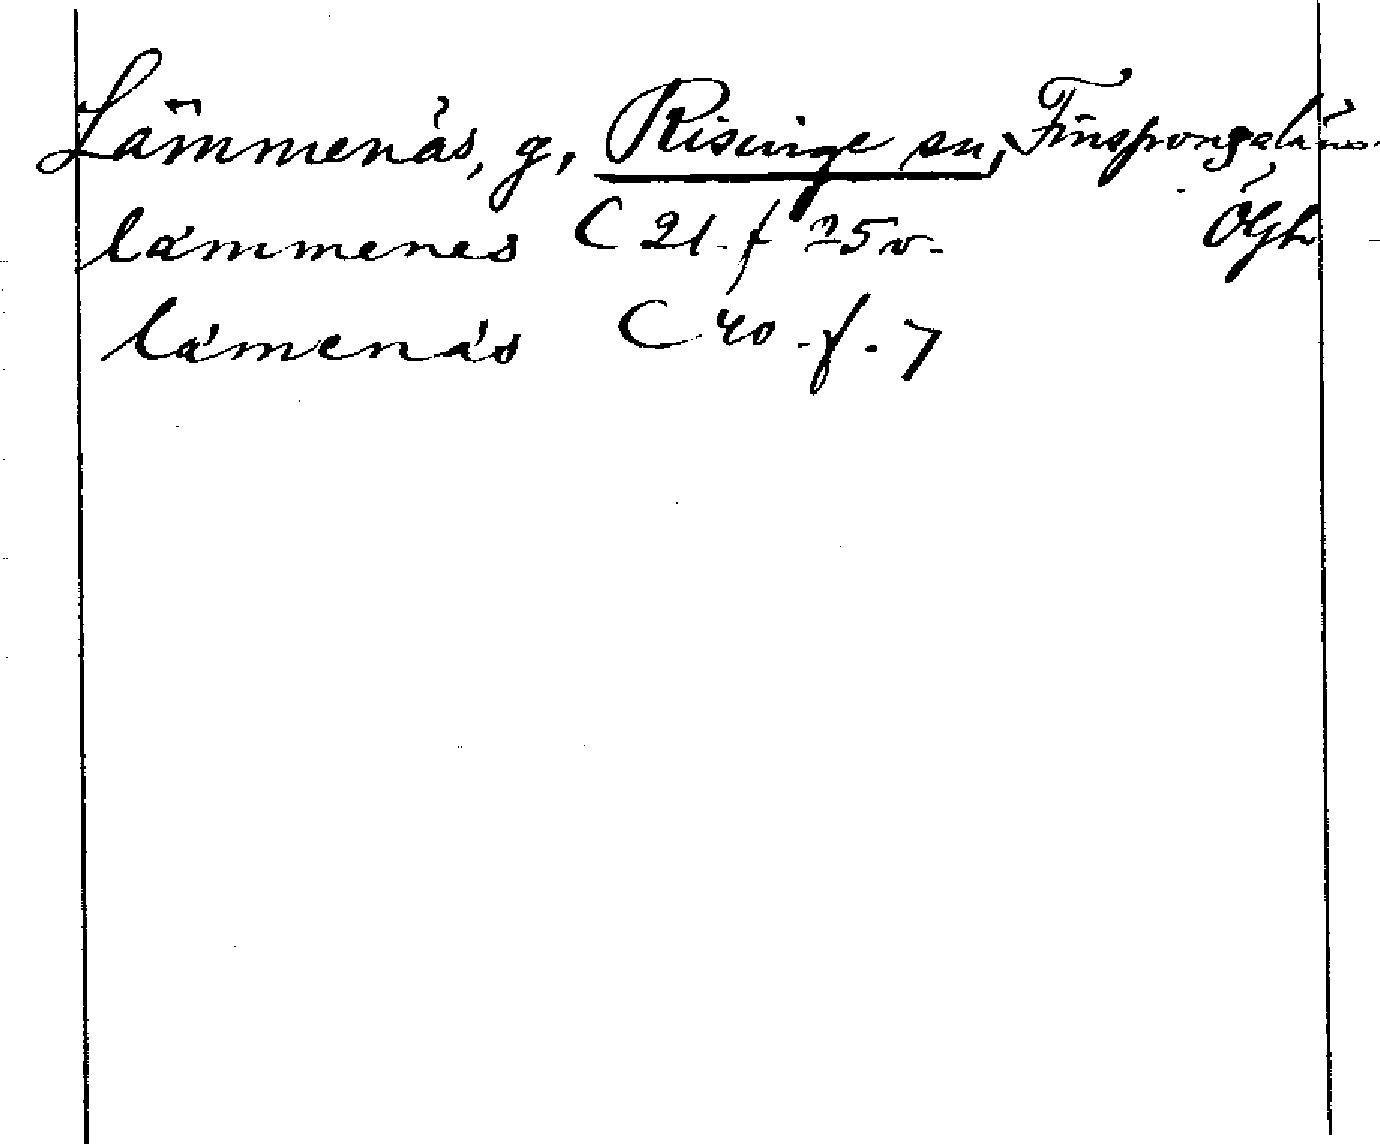 Lämmenäs, g, Risinge sn, Finspongaläns.
lämmenes C 21. f 25 v. Ögh
lämenäs C 40. f. 7